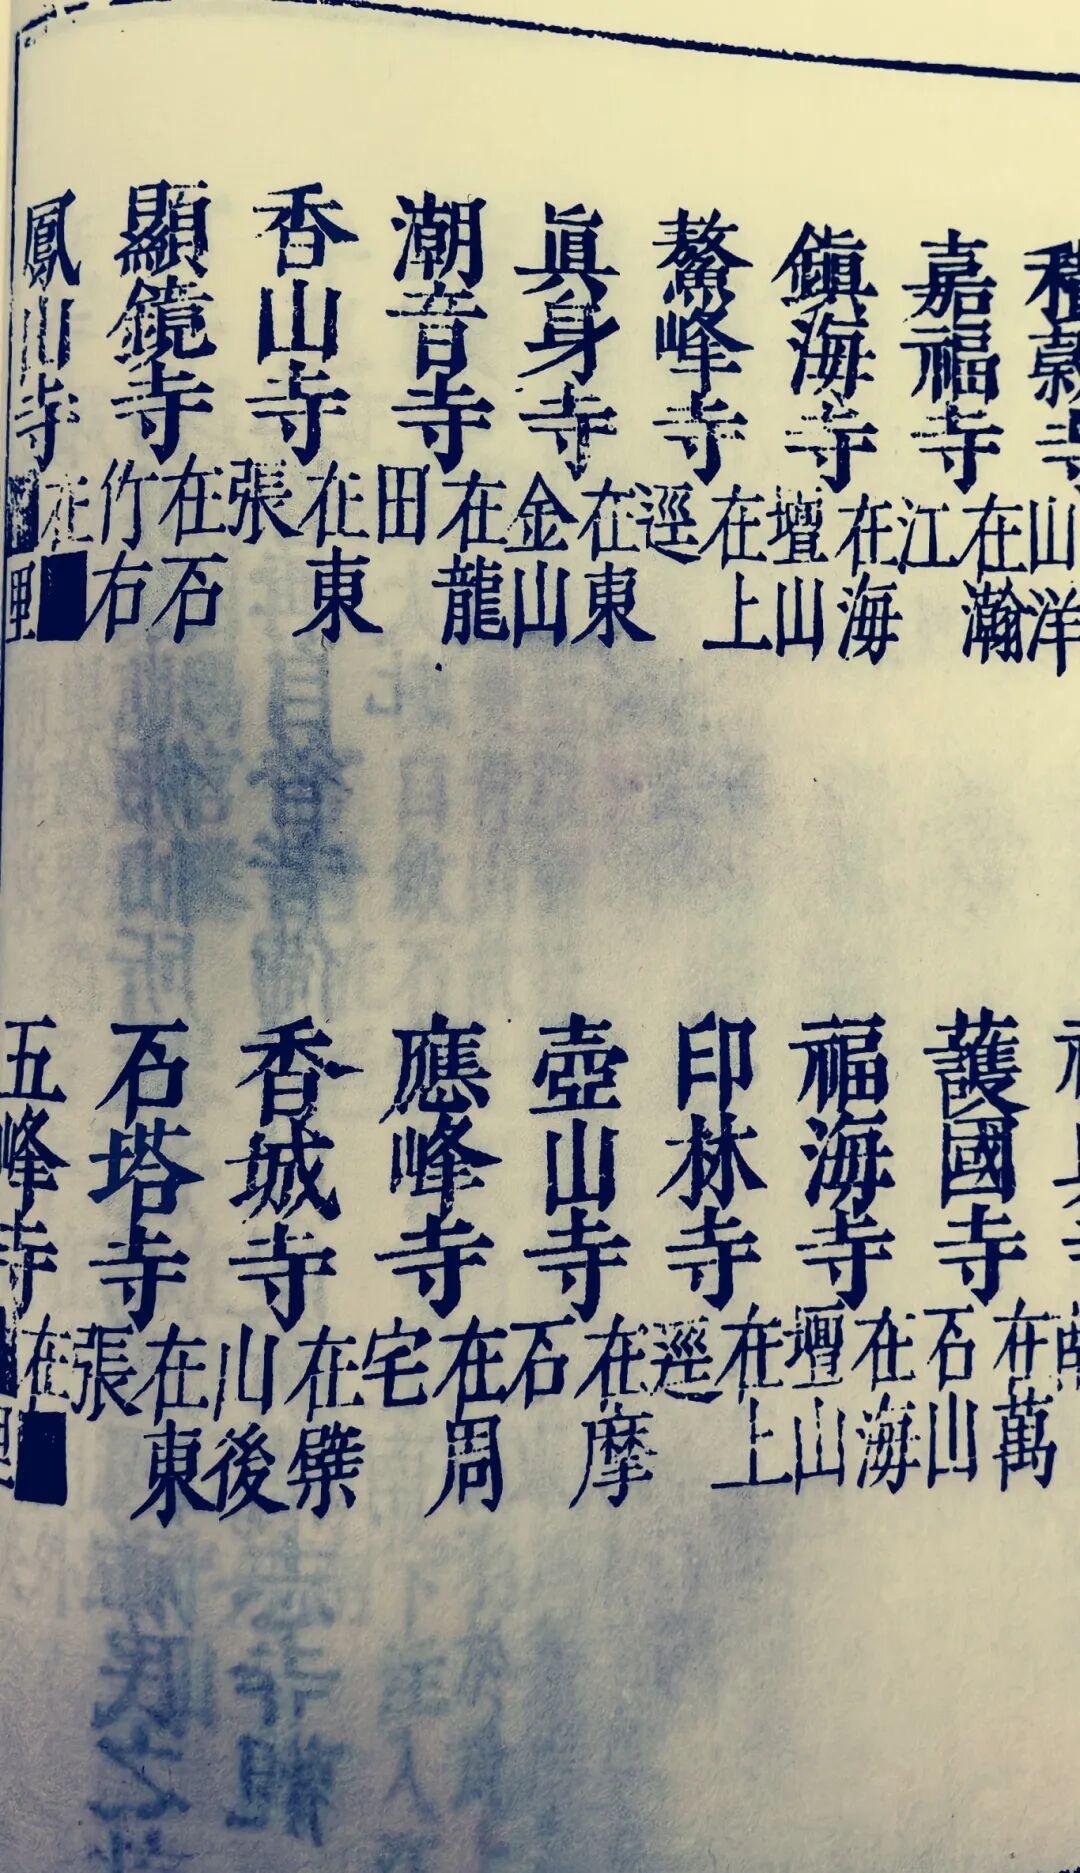 寺山洋
嘉福寺在瀚江
護國寺在萬石山
鎮海寺在海壇山
福海寺在海壇山
鰲峰寺在上逕
印林寺在上逕
眞身寺在東金山
壺山寺在摩石
潮音寺在龍田
應峰寺在周宅
香山寺在東張
香城寺在檗山後
顯鏡寺在石竹右
石塔寺在東張
鳳山寺在里
五峰寺在里